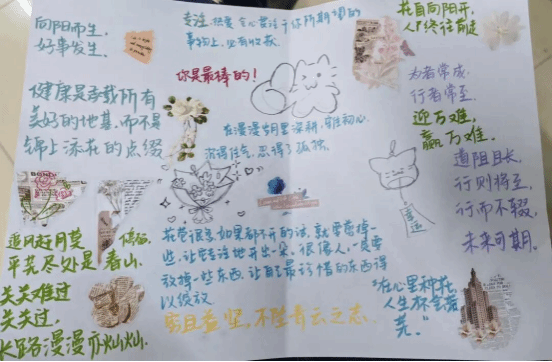 向阳而生,
好事发生。
专注,把要全心灌注于你所期望的
事物上,必有收获。
花自向阳开,
人终往前走
你是最棒的!
健康是承载所有
美好的地基,而不是
锦上添花的点缀
为者常成
行者常至
迎万难,
赢万难。
在漫漫岁月里深耕,守住初心
沉得住气,忍得了孤独。
道阻且长,
行则将至,
行而不辍,
未来可期。
追风赶月莫停留,
平芜尽处是春山。
花苞很多,如果都不开的话,就要剪掉一
些,让它专注地开出一朵。很像人,需要
放掉一些东西,让自己最珍惜的东西得
以绽放
关关难过
关关过,
长路漫漫亦灿灿。
"在心里种花,
人生才不会荒
芜。"
穷且益坚,不坠青云之志。